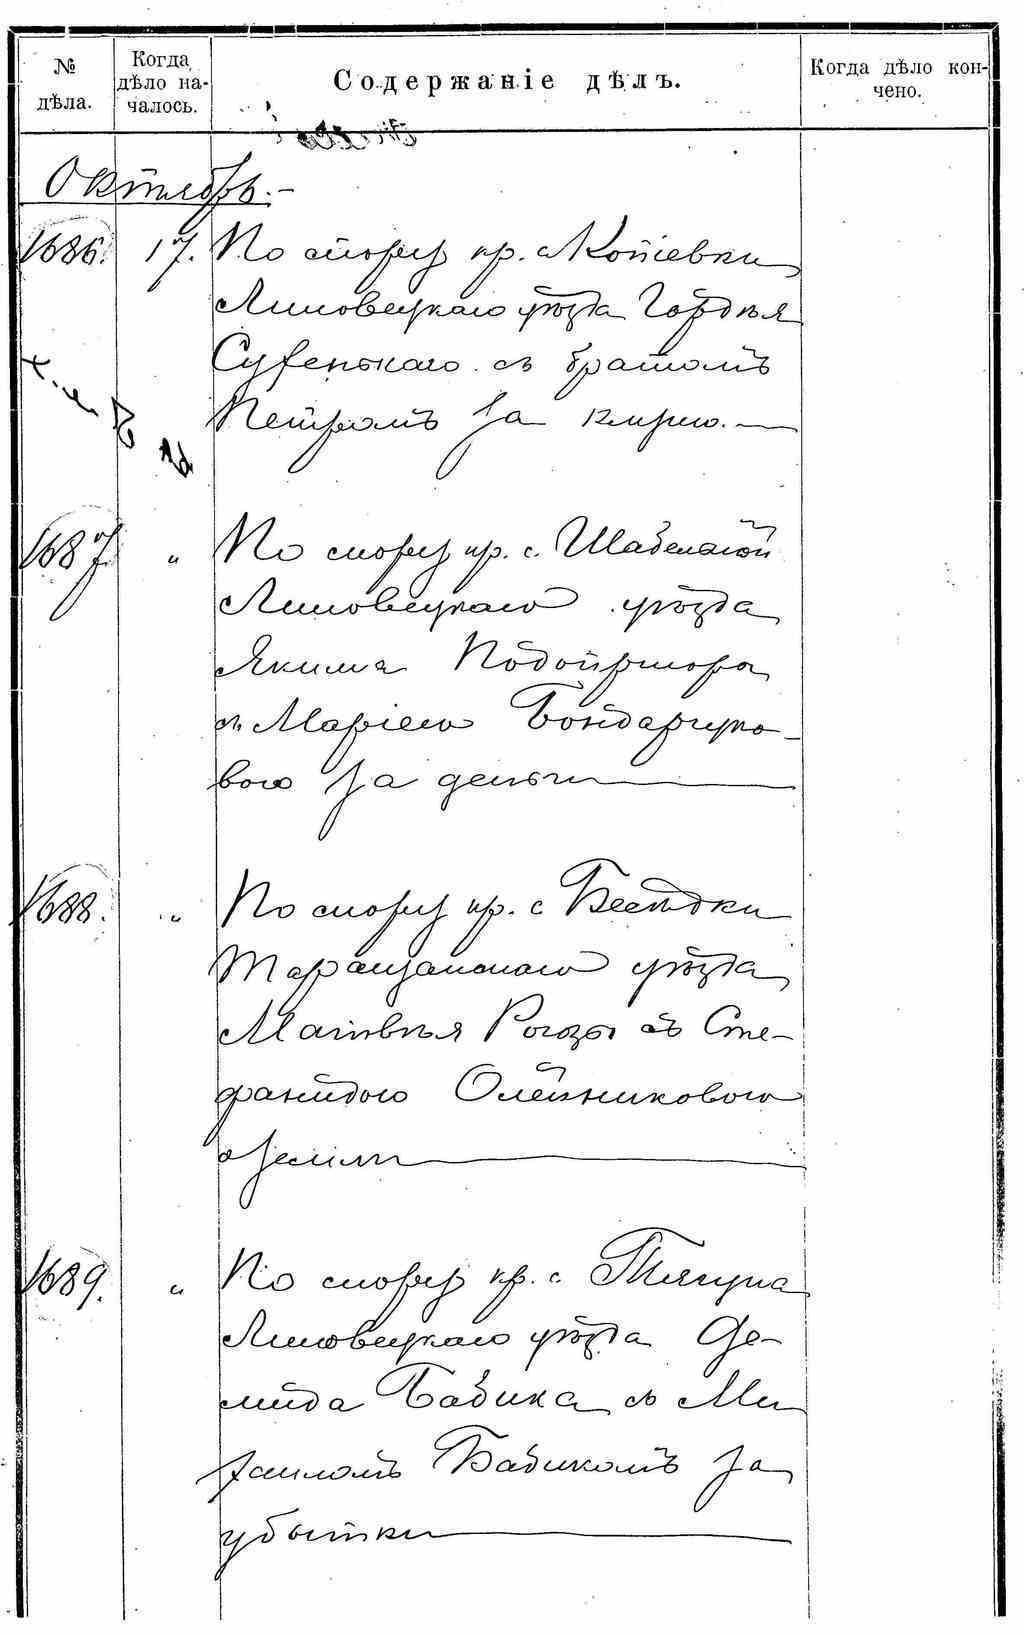 № дѣла.
Когда дѣло началось.
Содержаніе дѣлъ.
Когда дѣло кончено.
Октябрь.
1686. 17. По спору кр. с. Копіевки
Липовецкаго уѣзда Гордѣя
Суфенскаго съ братомъ
Петромъ за
1687. " По спору кр. с. Шабельной
Липовецкаго уѣзда
Якима Подопригора
съ Маріею Бондарчуко-
вою за деньги
1688. " По спору кр. с. Бесѣдки
Таращанскаго уѣзда
Матвѣя Рогозы съ Сте-
фанидою Олейниковою
о землѣ
1689. " По спору кр. с. Тягуна
Липовецкаго уѣзда Де-
мида Бабика съ Ми
хаиломъ Бабикомъ за
убытки